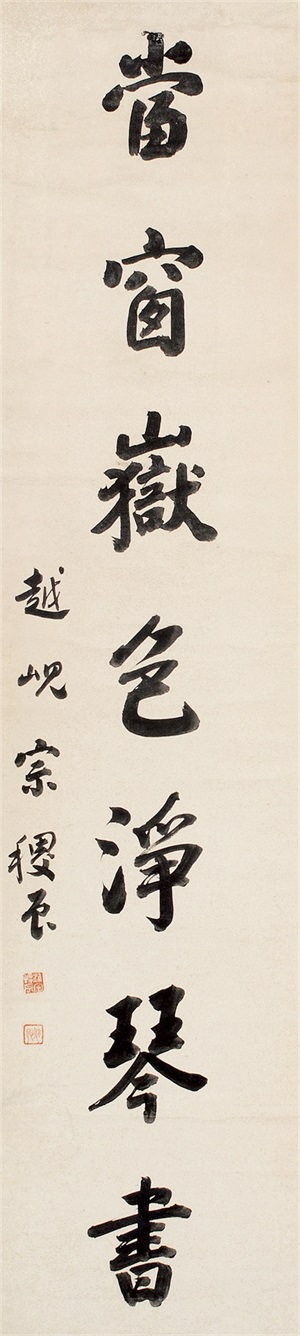 當窗嶽色淨琴書
越峴宗稷辰